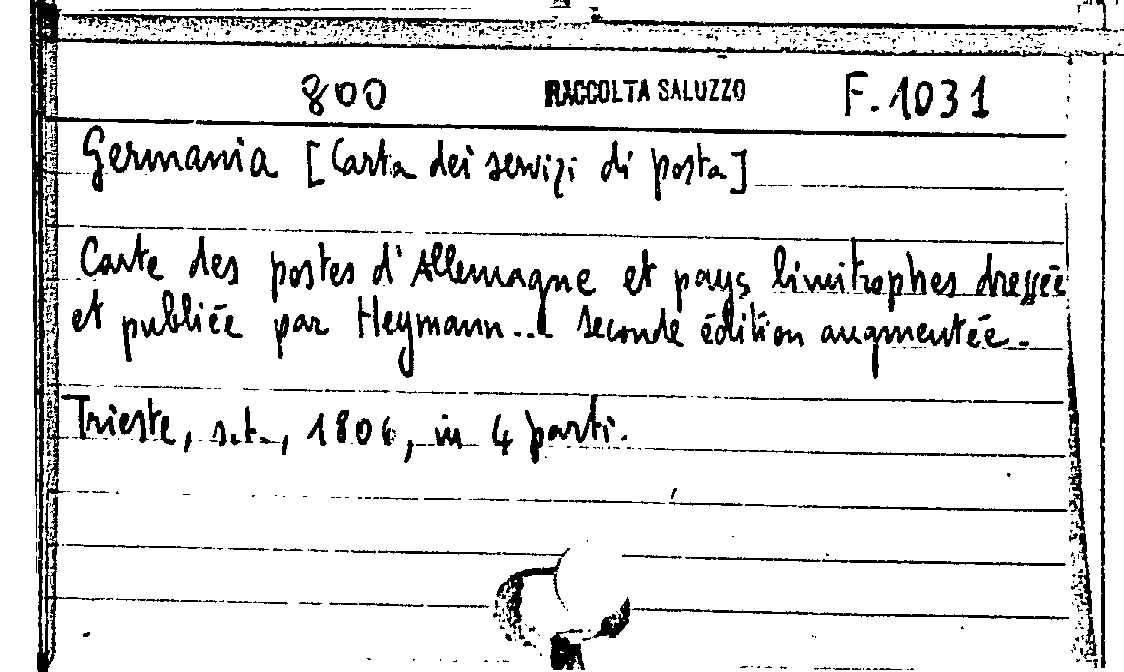 800 RACCOLTA SALUZZO F. 1031
Germania [Carta dei servizi di posta]
Carte des postes d'Allemagne et pays limitrophes dressée
et publiée par Heymann... Seconde édition augmentée.
Trieste, s.t., 1806, in 4 parti.